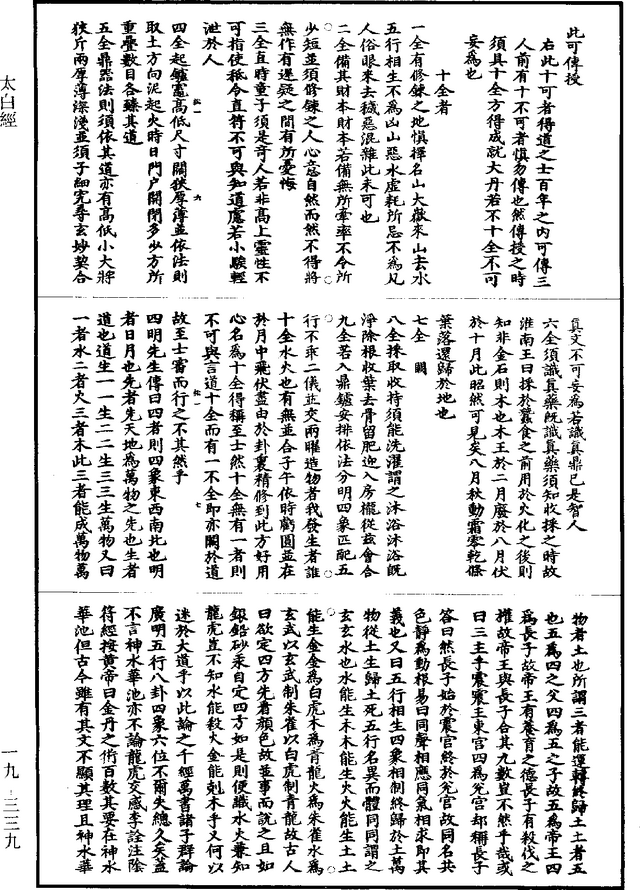 太白經
此可傳授
右此十可者得道之士百年之內可傳三
人前有十不可者慎勿傳也然傳授之時
須具十全方得成就大丹若不十全不可
妄為也
十全者
一全有修鍊之地慎擇名山大嶽來山去水
五行相生不為凶山惡水虛耗所忌不為凡
人俗眼來去穢惡混雜此未可也
二全備其財本財本若備無所牽率不令所
少短並須修鍊之人心意自然而然不得將
無作有遲疑之間有所憂悔
三全直時童子須是奇人若非高上靈性不
可指使秪令直符不可與知道處若小駿輕
泄於人
四全起鑪竈高低尺寸闊狹厚薄並依法則
取土方向泥起火時日門戶關閉多少方所
重疊數目各臻其道
五全鼎器法則須依其道亦有高低小大將
狹斤兩厚薄深淺並須子細完尋玄妙契合
真文不可妄為若識真鼎已是智人
六全須識真藥既識真藥須知收採之時故
淮南王曰採於蠶食之前用於火化之後則
知非金石則木也木王於二月廢於八月伏
於十月此昭然可見矣八月秋動霜零乾條
葉落還歸於地也
七全　闕
八全採取收持須能洗濯謂之沐浴沐浴既
淨除根收葉去骨留肥迎入房櫳從茲會合
九全若入鼎鑪安排依法分明四象匹配五
行不乖二儀並交兩曜造物者我發生者誰
十全水火也有無並合子午依時勸圓並在
於月中飛伏盡由於卦裏精修到此方好用
心名為十全得稱至士然十全無有一者則
不可與言道十全而有一不全即亦闕於道
故至士審而行之不其然乎
四明先生傳曰四者則四象東西南北也明
者日月也先者先天地為萬物之先也生者
道也道生一一生二二生三三生萬物又曰
一者水二者火三者木此三者能成萬物萬
物者土也所謂三者能運轉終歸土土者五
也五為四之父四為五之子故五為帝王四
為長子故帝王有養育之德長子有殺伐之
權故帝王與長子合其九數豈不然乎哉或
曰三主乎震震王東宮四為兌宮却稱長子
答曰然長子始於震宮終於兌宮故同名共
色靜為動根易曰同聲相應同氣相求即其
義也又曰五行相生四象相制終歸於土萬
物從土生歸土死五行名異而體同同謂之
玄玄水也水能生木木能生火火能生土土
能生金金為白虎木為青龍火為朱雀水為
玄武以玄武制朱雀以白虎制青龍故古人
曰欲定四方先看顏色故並事而說之且如
銀鉛砂汞自定四方如是則便識水火兼知
龍虎豈不知水能殺火金能剋木乎又何以
迷於大道乎以此論之千經萬書諸子群論
廣明五行八卦四象六位不爾失總久矣益
不言神水華池亦不論龍虎交感李詮注陰
符經接黃帝曰金丹之術百數其要在神水
華池但古今雖有其文不顯其理且神水華
一九－三三九